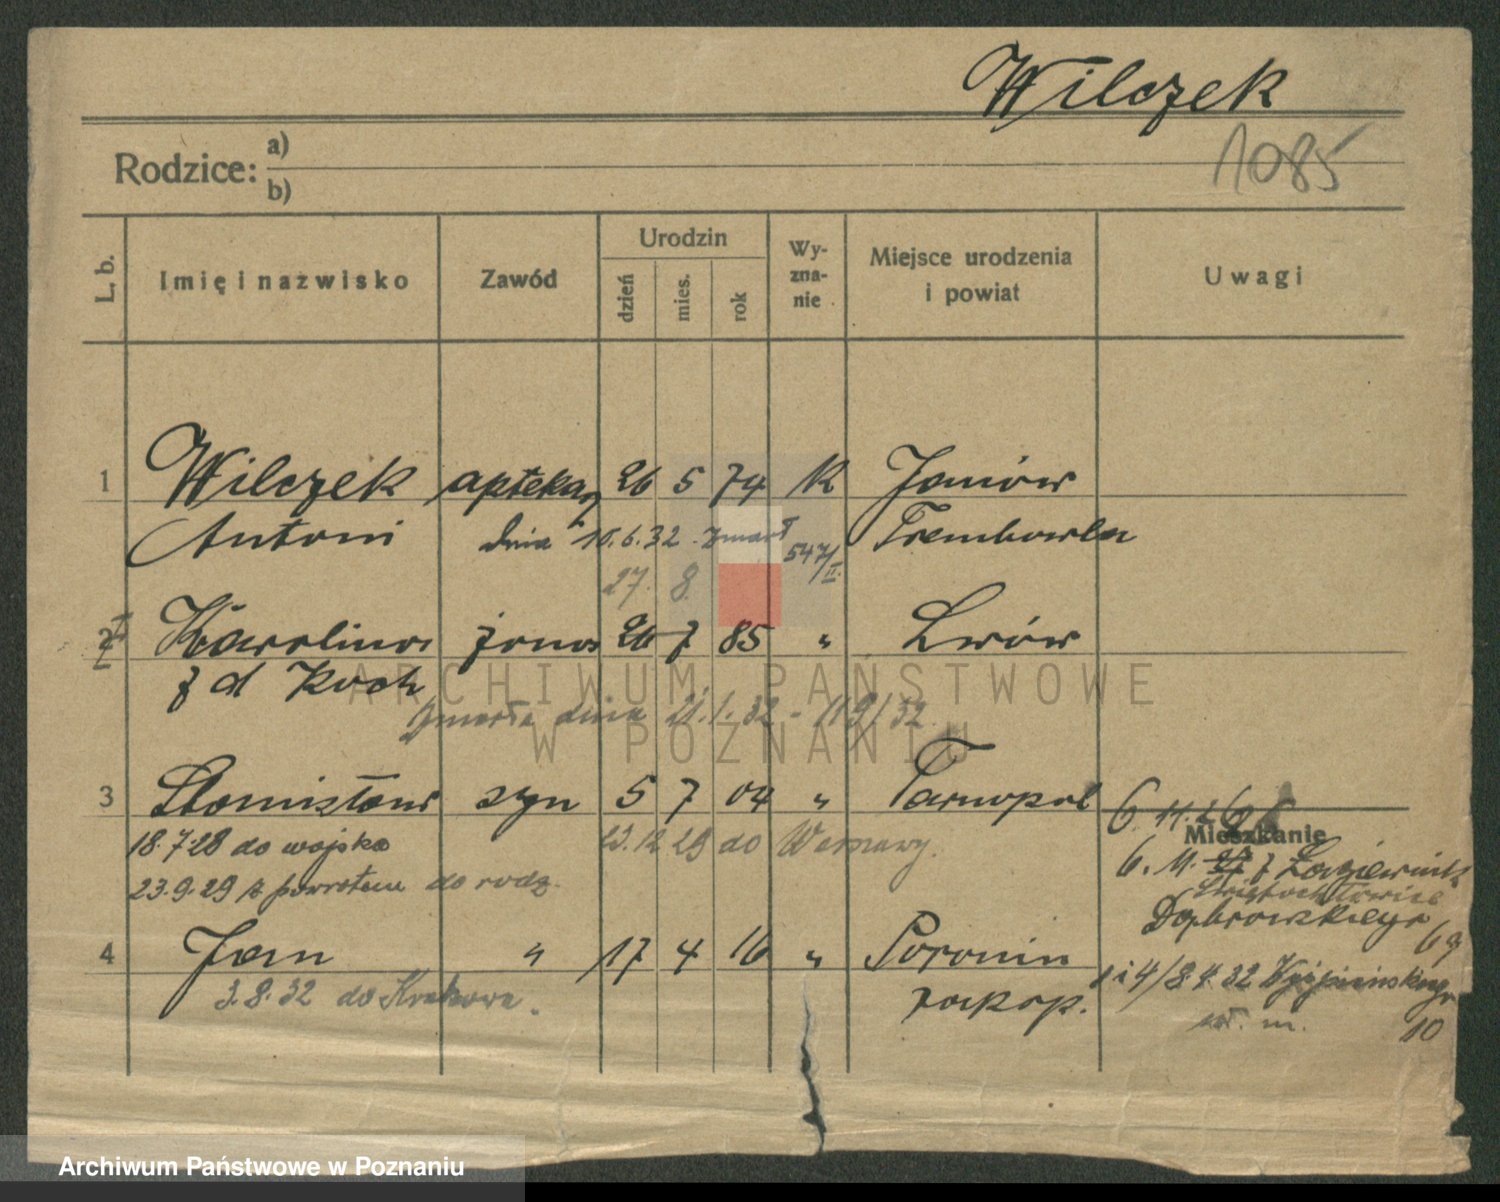 Wilczek
1085
Rodzice: a)
b)
L. b. Imię i nazwisko Zawód Urodzin dzień mies. rok Wy-zna-nie Miejsce urodzenia i powiat Uwagi
1 Wilczek aptekarz 26 5 74 K Janów
Antoni dnia 10.6.32 zmarł 547/II. Trembowla
27. 8.
2 Karolina żona 26 7 85 " Lwów
z d Koch
zmarła dnia 21.1.32 - 119/32
3 Stanisław syn 5 7 04 " Tarnopol
6.11.26
Mieszkanie
18.7.28 do wojska 23.12 29 do Warszawy.
6.11. 27 z
23.9.29 z powrotem do rodz.
Dąbrowskiego 69
4 Jan " 17 4 16 " Poronin
3.8.32 do Krakowa.
1 i 4/8.4.32 Wyspiańskiego 10
zakop.
ARCHIWUM PAŃSTWOWE
W POZNANIU
Archiwum Państwowe w Poznaniu